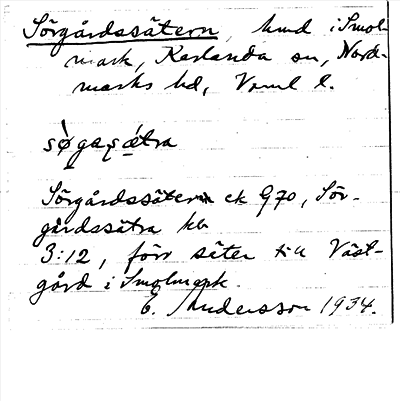 Sörgårdssätern, hmd i Smol-
mark, Karlanda sn, Nord-
marks hd, Vrml l.
søgaṣætra
Sörgårdssätern ek G70, Sör-
gårdssätra hb
3:12, förr säter till Väst-
gård i Smolmark.
E. Andersson 1934.